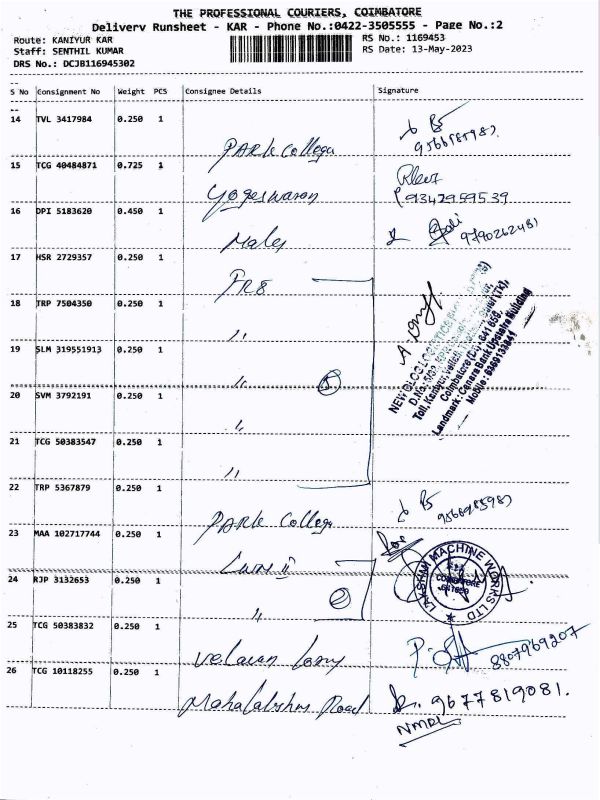 THE PROFESSIONAL COURIERS, COIMBATORE
Delivery Runsheet - KAR - Phone No.:0422-3505555 - Page No.:2
Route: KANIYUR KAR RS No.: 1169453
Staff: SENTHIL KUMAR RS Date: 13-May-2023
DRS No.: DCJB116945302
S No Consignment No Weight PCS Consignee Details Signature
14 TVL 3417984 0.250 1
PARK College
15 TCG 40484871 0.725 1
Yogeswaran 9342959539
16 DPI 5183620 0.450 1
9790262481
17 HSR 2729357 0.250 1
FR8
18 TRP 7504350 0.250 1
"
19 SLM 319551913 0.250 1
" 5
20 SVM 3792191 0.250 1
"
21 TCG 50383547 0.250 1
"
Coimbatore (Dt) - 641 658.
Landmark: Canara Bank Upstairs Building
Mobile :
22 TRP 5367879 0.250 1
PARK College
23 MAA 102717744 0.250 1
24 RJP 3132653 0.250 1
" 2
LAKSHMI MACHINE WORKS LTD
COIMBATORE
25 TCG 50383832 0.250 1
Velavan 8807969207
26 TCG 10118255 0.250 1
Mahalakshmi Road 9677819081.